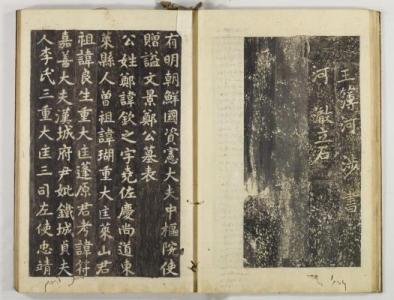 主簿河 涉 書
河 澈立石
有明朝鮮國資憲大夫中樞院使
贈諡文景鄭公墓表
公姓鄭諱欽之字堯佐慶尚道東
萊縣人曾祖諱瑚重大匡萊山君
祖諱良生重大匡蓬原君考諱符
嘉善大夫漢城府尹妣鐵城貞夫
人李氏三重大匡三司左使忠靖